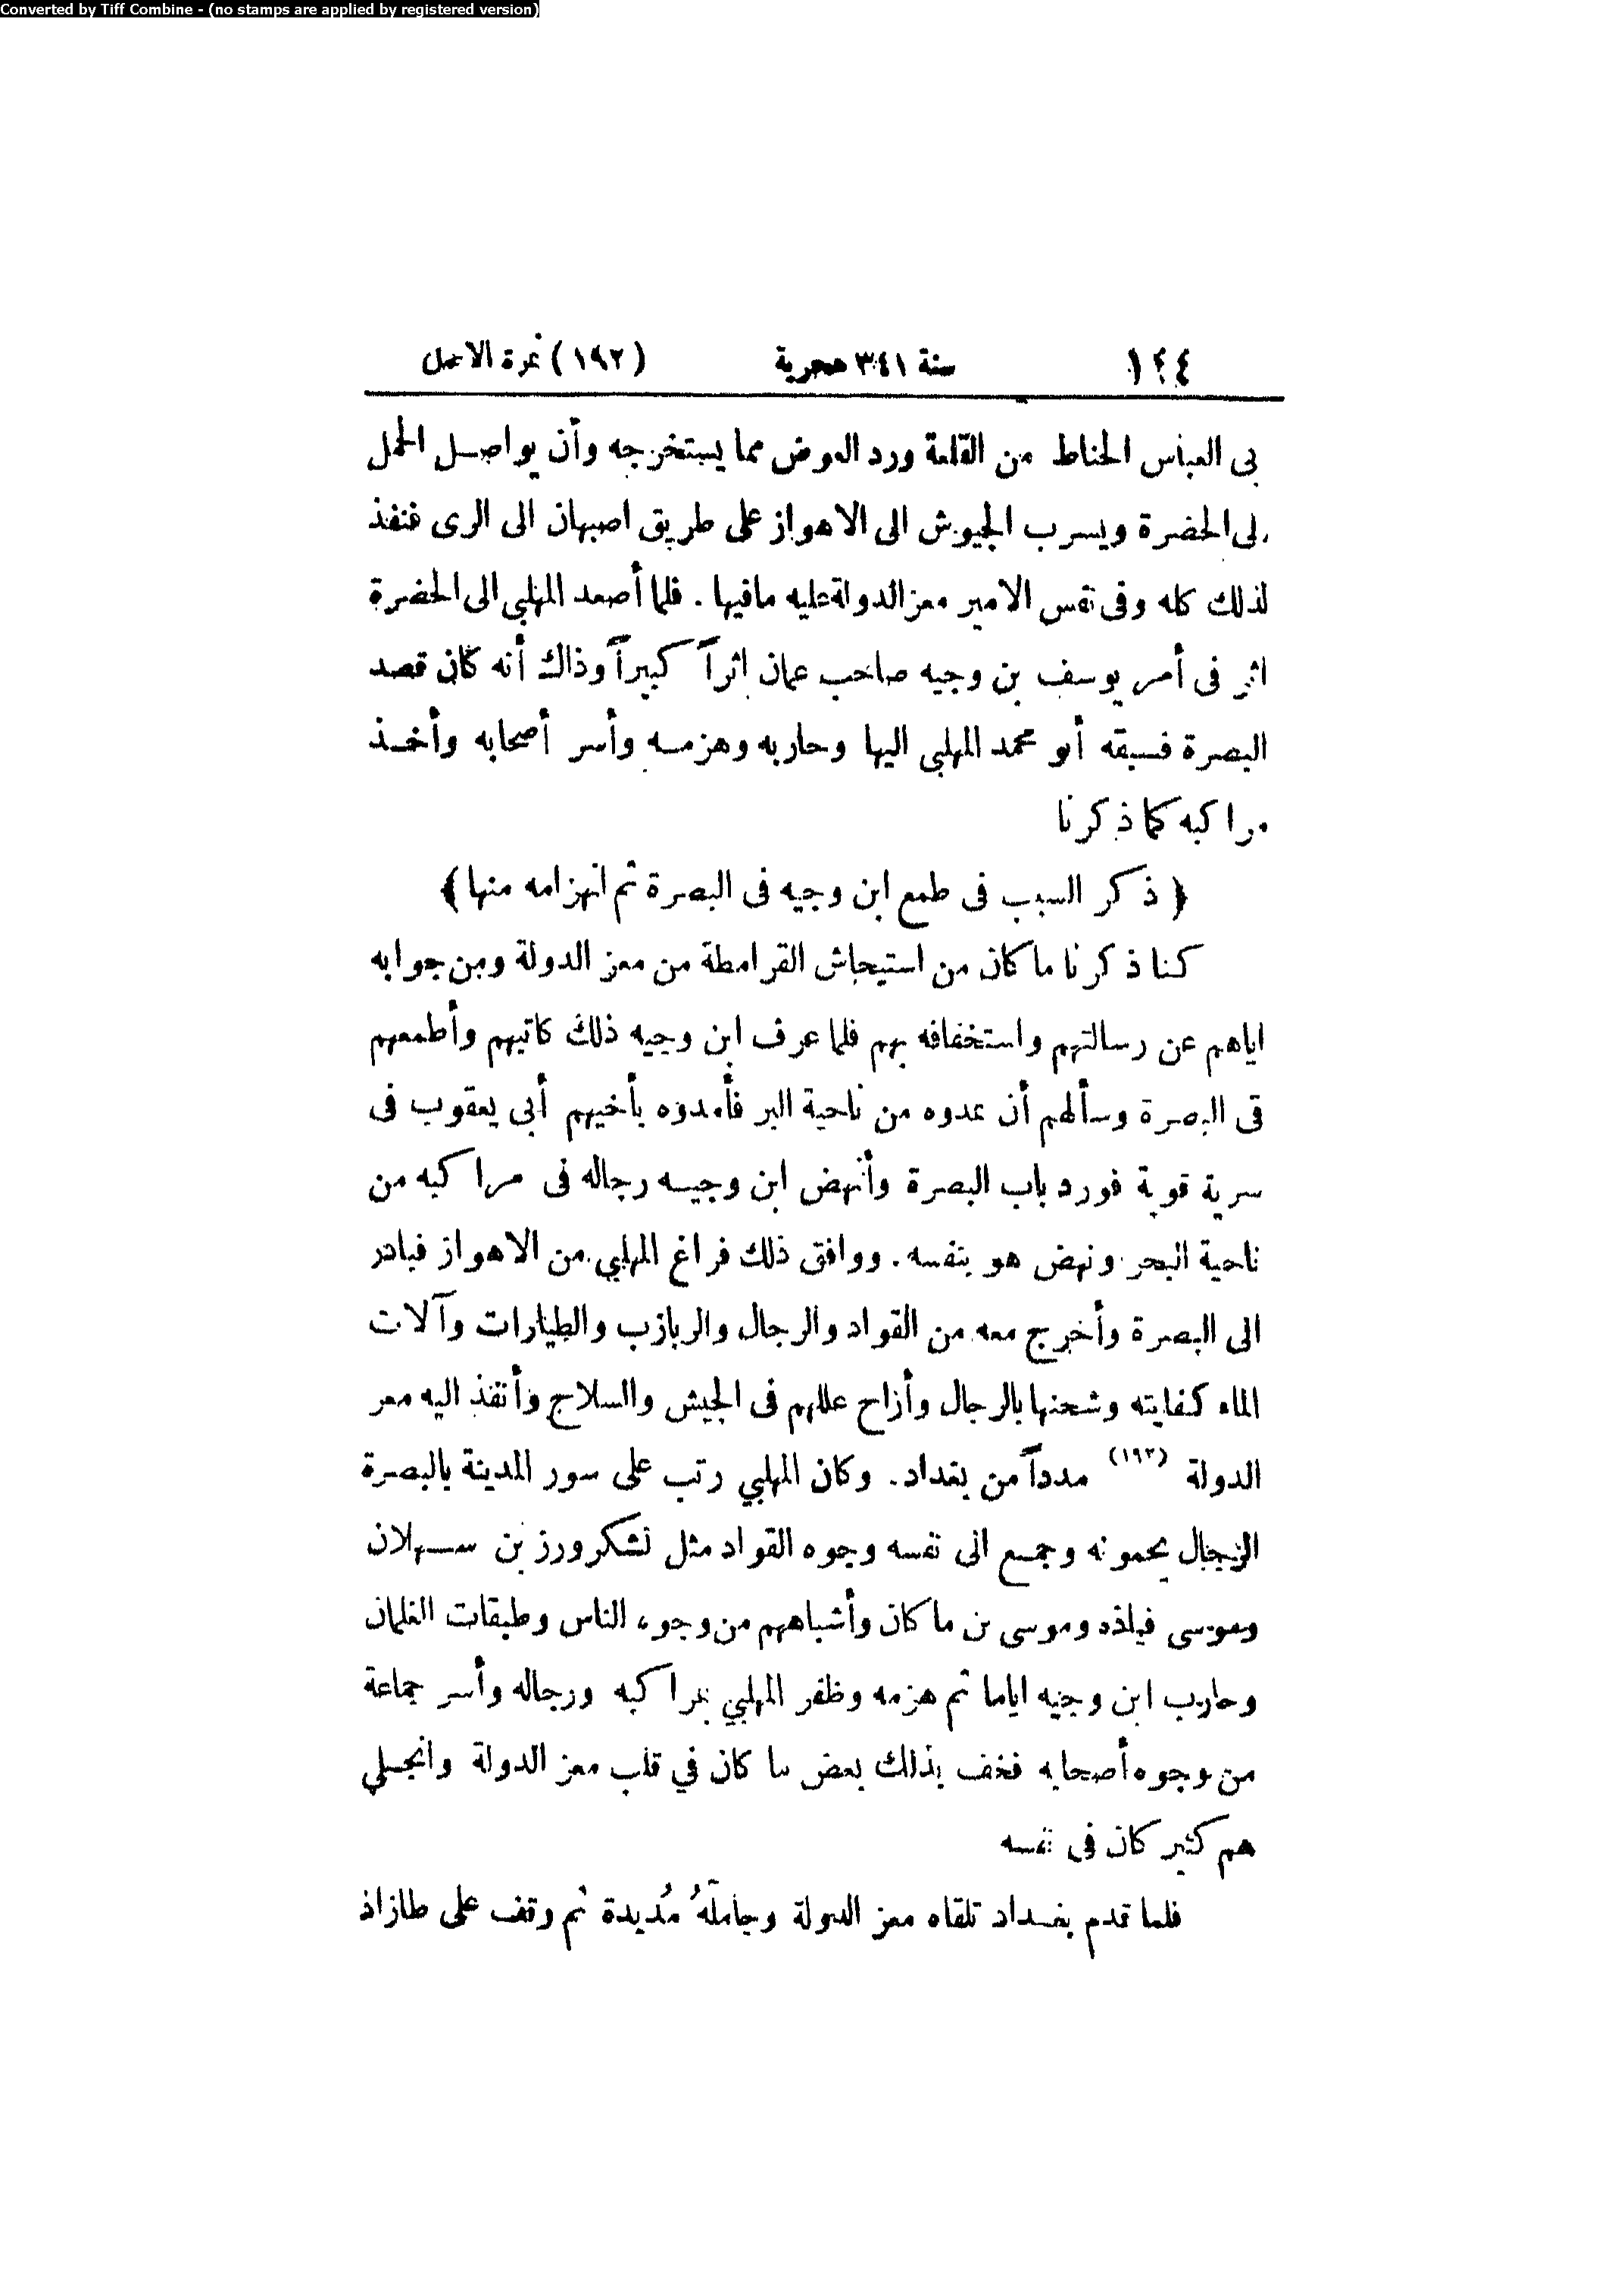 Converted by Tiff Combine - (no stamps are applied by registered version)
١٤٤ سنة ٣٤١ هجرية (١٩٢) نمرة الاصل
بى العباس الحناط من القلعة ورد العوض مما يستخرجه وأن يواصل الحمل
لى الحضرة ويسرب الجيوش الى الاهواز على طريق اصبهان الى الرى فنفذ
لذلك كله وفى نفس الامير معز الدولة عليه مافيها . فلما أصعد المهلبى الى الحضرة
اثر فى أمر يوسف بن وجيه صاحب عمان اثراً كبيراً وذاك أنه كان قصد
البصرة فسبقه أبو محمد المهلبى اليها وحاربه وهزمه وأسر أصحابه وأخذ
مراكبه كما ذكرنا
﴿ ذكر السبب فى طمع ابن وجيه فى البصرة ثم انهزامه منها ﴾
كنا ذكرنا ما كان من استيحاش القرامطة من معز الدولة ومن جوابه
اياهم عن رسالتهم واستخفافه بهم فلما عرف ابن وجيه ذلك كاتبهم وأطمعهم
فى البصرة وسألهم أن يمدوه من ناحية البر فأمدوه بأخيهم أبى يعقوب فى
سرية قوية فورد باب البصرة وأنهض ابن وجيه رجاله فى مراكبه من
ناحية البحر ونهض هو بنفسه . ووافق ذلك فراغ المهلبي من الاهواز فبادر
الى البصرة وأخرج معه من القواد والرجال والزبازب والطيارات وآلات
الماء كفايته وشحنها بالرجال وأزاح عللهم فى الجيش والسلاح وأنفذ اليه معز
الدولة (١٩٣) مدداً من بغداد . وكان المهلبي رتب على سور المدينة بالبصرة
الرجال يحمونه وجمع الى نفسه وجوه القواد مثل لشكرورز بن سهلان
وموسى فياذه وموسى بن ماكان وأشباههم من وجوه الناس وطبقات الغلمان
وحارب ابن وجيه اياما ثم هزمه وظفر المهلبي بمراكبه ورجاله وأسر جماعة
من وجوه أصحابه فخف بذلك بعض ما كان في قلب معز الدولة وانجلى
هم كثير كان فى نفسه
فلما قدم بغداد تلقاه معز الدولة وجاملَهُ مُديدة ثم وقف على طازاذ